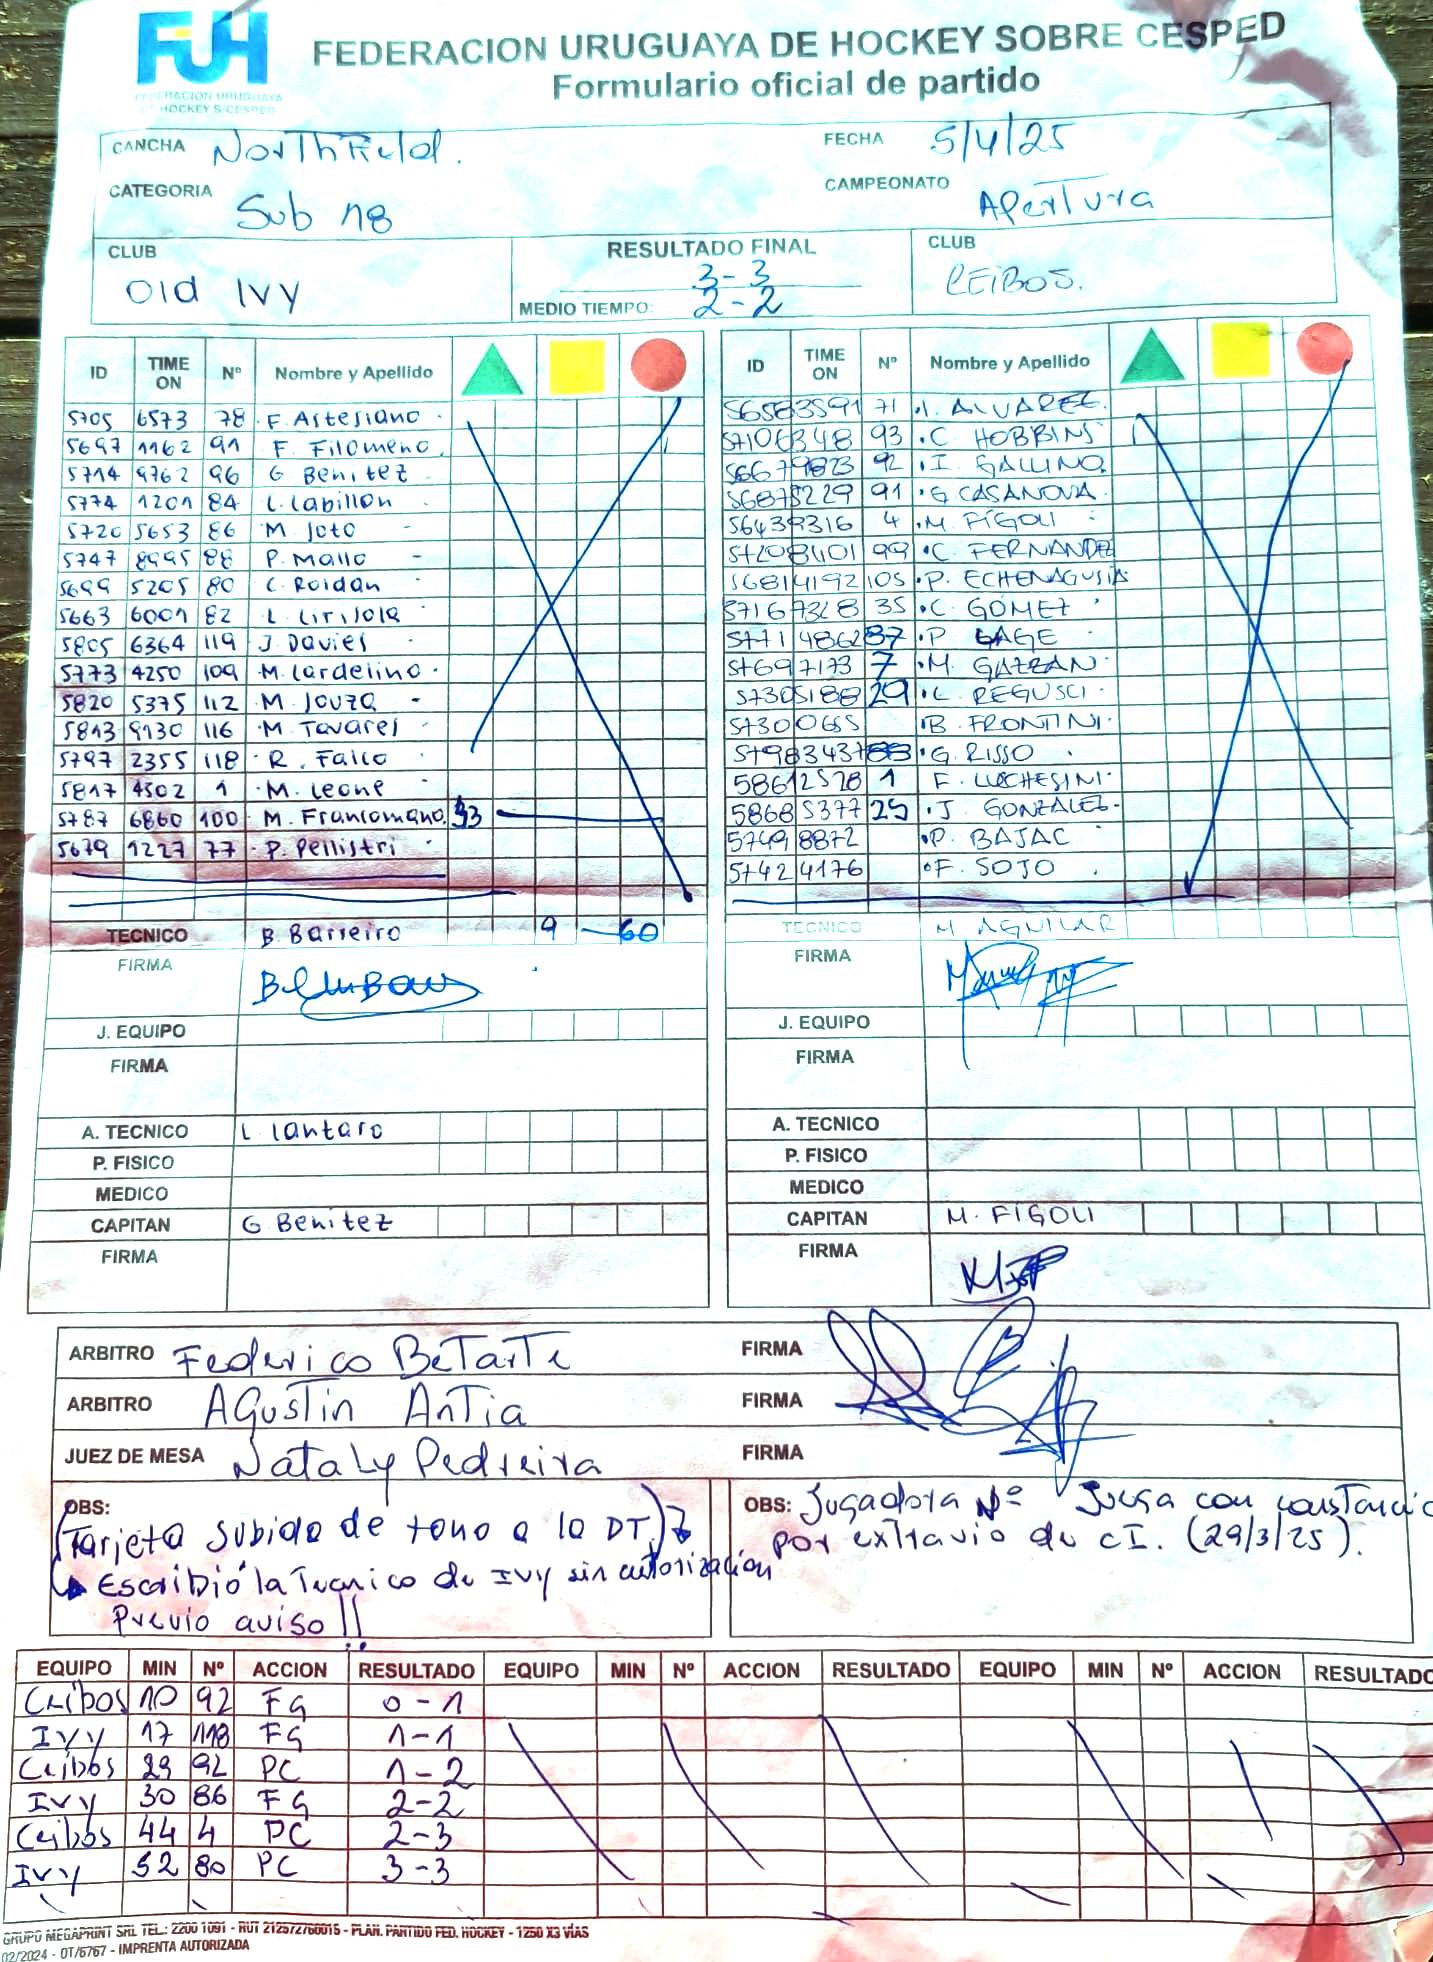 FUH
FEDERACION URUGUAYA
DE HOCKEY S/CESPED
FEDERACION URUGUAYA DE HOCKEY SOBRE CESPED
Formulario oficial de partido
CANCHA NorthField. FECHA 5/4/25
CATEGORIA Sub 18 CAMPEONATO Apertura
CLUB Old Ivy RESULTADO FINAL 3-3 CLUB CEIBOS.
MEDIO TIEMPO: 2-2
ID TIME ON Nº Nombre y Apellido
5705 6573 78 F. Astesiano
5697 1162 91 F. Filomeno
5714 9762 96 G Benitez
5774 1201 84 L. Labillon
5720 5653 86 M Soto
5747 8995 88 P. Mallo
5699 5205 80 C. Roldan
5663 6001 82 L. Cirisola
5805 6364 119 J. Davies
5773 4250 109 M. Cardelino
5820 5375 112 M. Souza
5813 9130 116 M Tavares
5797 2355 118 R. Falco
5817 4502 1 M. Leone
5787 6860 100 M. Francomano 33
5679 1227 77 P. Pellistri
TECNICO B. Barreiro 9 60
FIRMA
J. EQUIPO
FIRMA
A. TECNICO L. Lantaro
P. FISICO
MEDICO
CAPITAN G Benitez
FIRMA
ID TIME ON Nº Nombre y Apellido
56583591 71 I. ALVAREZ
57106348 93 C. HOBBINS
56679823 92 I. GALLINO
56875229 91 G. CASANOVA
56439316 4 M. FIGOLI
57208401 99 C. FERNANDEZ
56814192 105 P. ECHENAGUSIA
57167328 35 C. GOMEZ
57714862 87 P. GAGE
57697173 7 M. GAZZAN
57305188 29 C. REGUSCI
57300655 B. FRONTINI
57983437 G. RISSO
58612528 1 F. LUCHESINI
58685377 25 J. GONZALEZ
57498872 P. BAJAC
57424176 F. SOJO
TECNICO M AGUILAR
FIRMA
J. EQUIPO
FIRMA
A. TECNICO
P. FISICO
MEDICO
CAPITAN M. FIGOLI
FIRMA
ARBITRO Federico Betarte FIRMA
ARBITRO Agustin Antia FIRMA
JUEZ DE MESA Nataly Pedreira FIRMA
OBS:
(Tarjeta subida de tono a la DT.)
Escribió la Tecnico de IVY sin autorización
Previo aviso !!
OBS: Jugadora Nº Juega con constancia
por extravio de CI. (29/3/25).
EQUIPO MIN Nº ACCION RESULTADO EQUIPO MIN Nº ACCION RESULTADO EQUIPO MIN Nº ACCION RESULTADO
Ceibos 10 92 FG 0-1
Ivy 17 118 FG 1-1
Ceibos 29 92 PC 1-2
Ivy 30 86 FG 2-2
Ceibos 44 4 PC 2-3
Ivy 52 80 PC 3-3
GRUPO MEGAPRINT SRL TEL.: 2200 1091 - RUT 212572760015 - PLAN. PARTIDO FED. HOCKEY - 1250 X3 VÍAS
02/2024 - OT/5767 - IMPRENTA AUTORIZADA